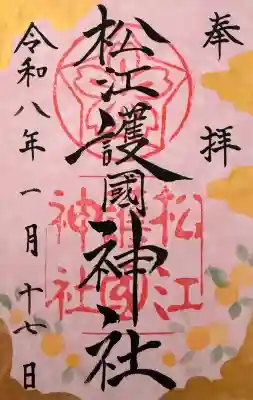 奉拝
松江護國神社
松江
護國
神社
令和八年一月十七日